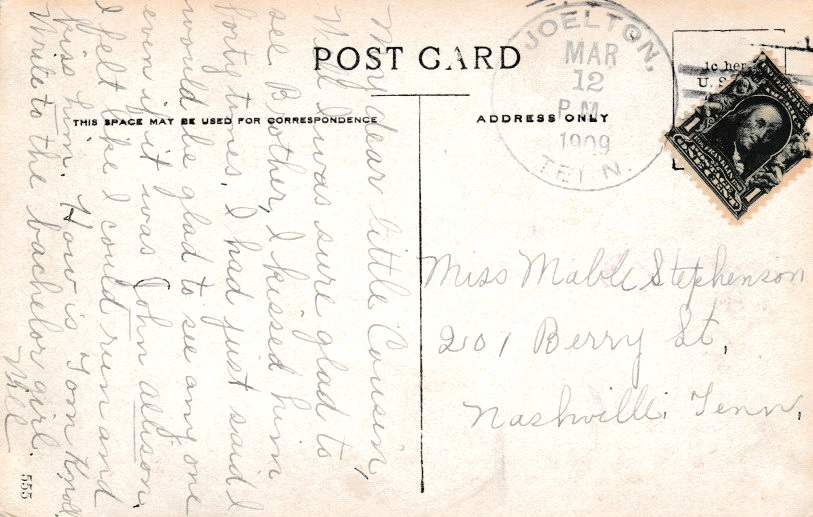 POST CARD
THIS SPACE MAY BE USED FOR CORRESPONDENCE
ADDRESS ONLY
JOELTON,
MAR
12
P.M.
1909
TENN.
ic her
U.S.
ONE CENT
1
1
Miss Mable Stephenson
201 Berry St,
Nashville. Tenn.
My dear little Cousin,
Well I was sure glad to
see Brother, I kissed him
forty times. I had just said I
would be glad to see any one
even if it was John Allison.
I felt like I could run and
kiss him. How is Tom Knoll
Write to the bachelor girl.
Will
555